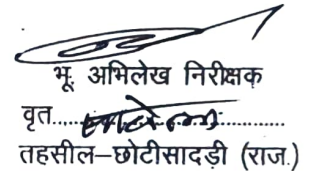 भू. अभिलेख निरीक्षक
वृत........................
तहसील–छोटीसादड़ी (राज.)